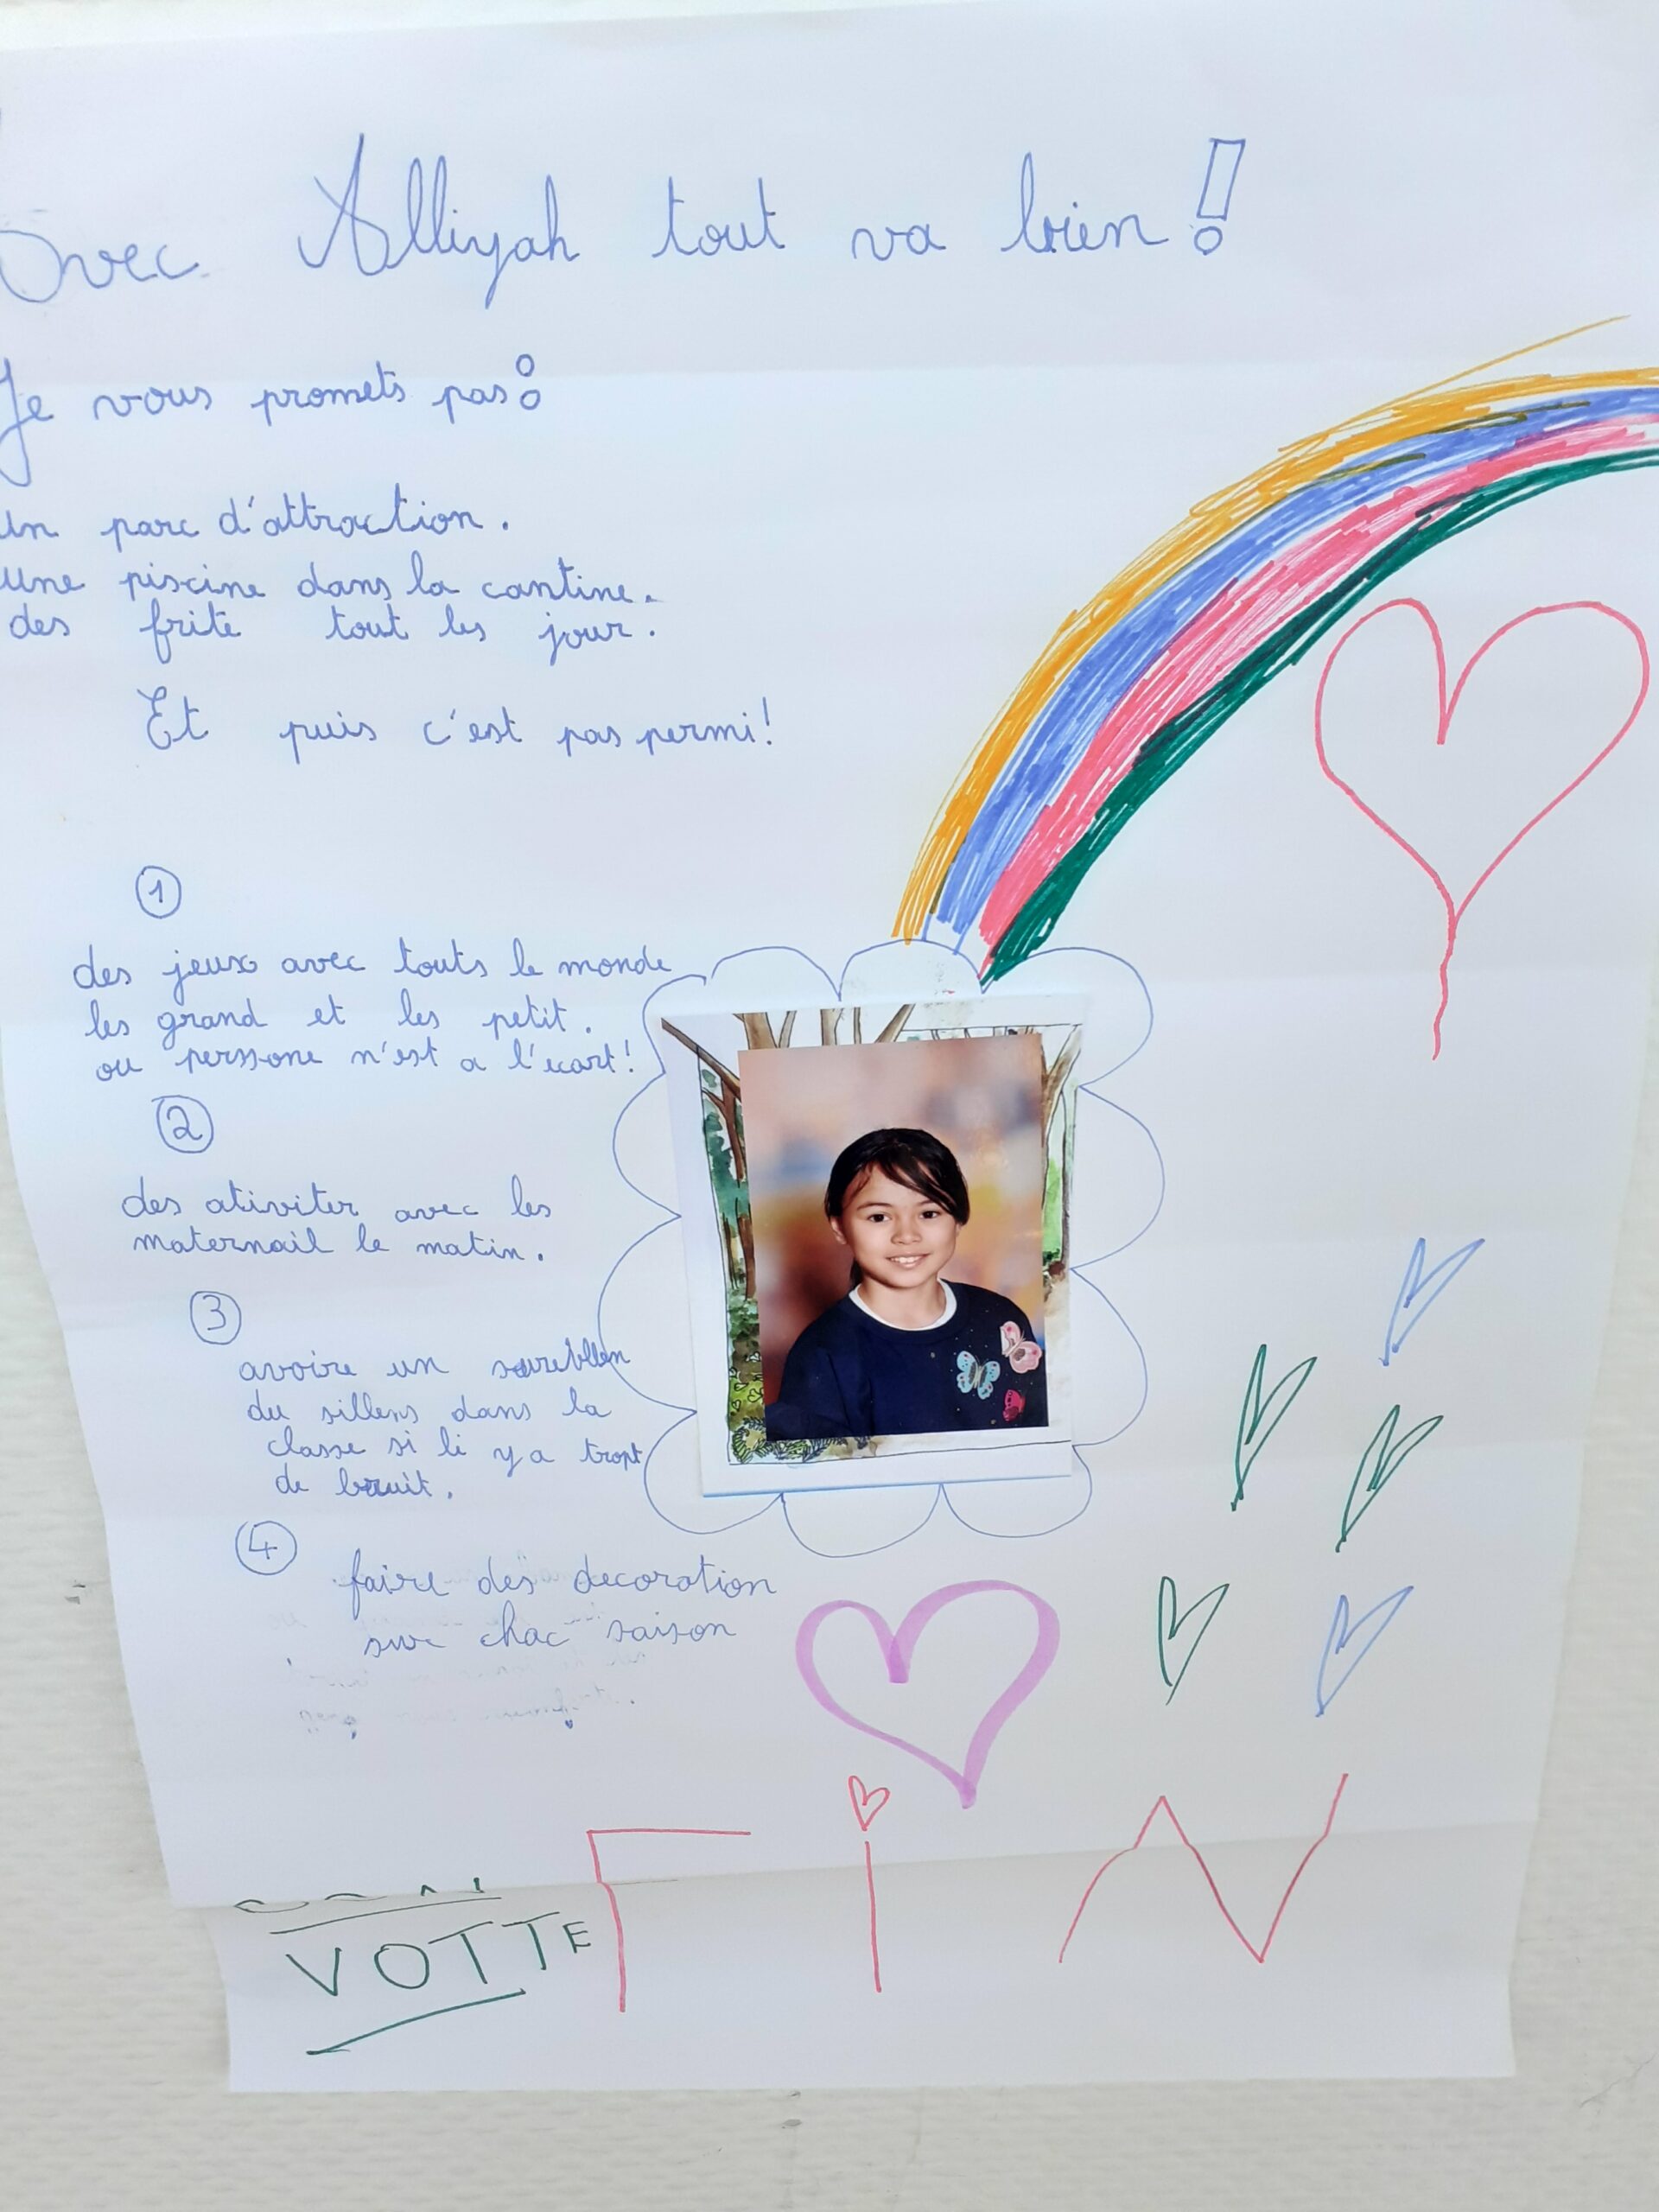 Avec Alliyah tout va bien !
Je vous promets pas :
un parc d'attraction.
une piscine dans la cantine.
des frite tout les jour.
Et puis c'est pas permi !
1
des jeux avec touts le monde
les grand et les petit.
ou persone n'est a l'ecart !
2
des ativiter avec les
maternail le matin.
3
avoire un
du sillens dans la
classe si li y a tropt
de bruit.
4
faire des decoration
sur chac saison
FiN
VOTTE